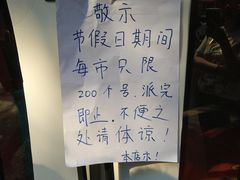 敬示
节假日期间
每市只限
200个号,派完
即止,不便之
处请体谅!
本店示!